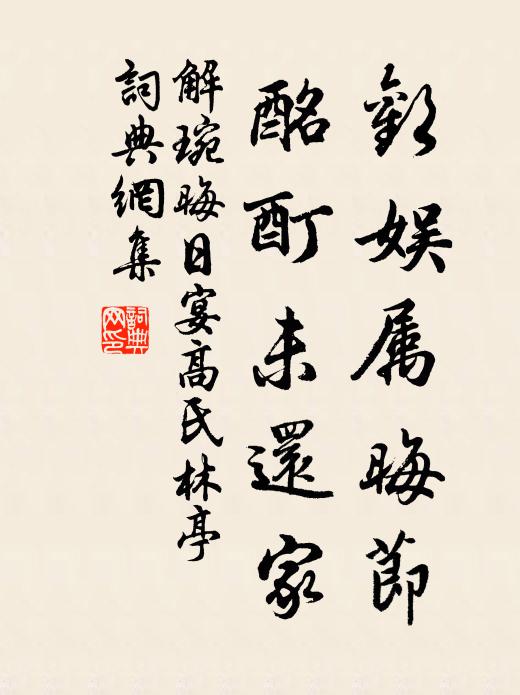 歡娛属晦節
酩酊未還家
解琬晦日宴高氏林亭
詞典網集
詞典网印